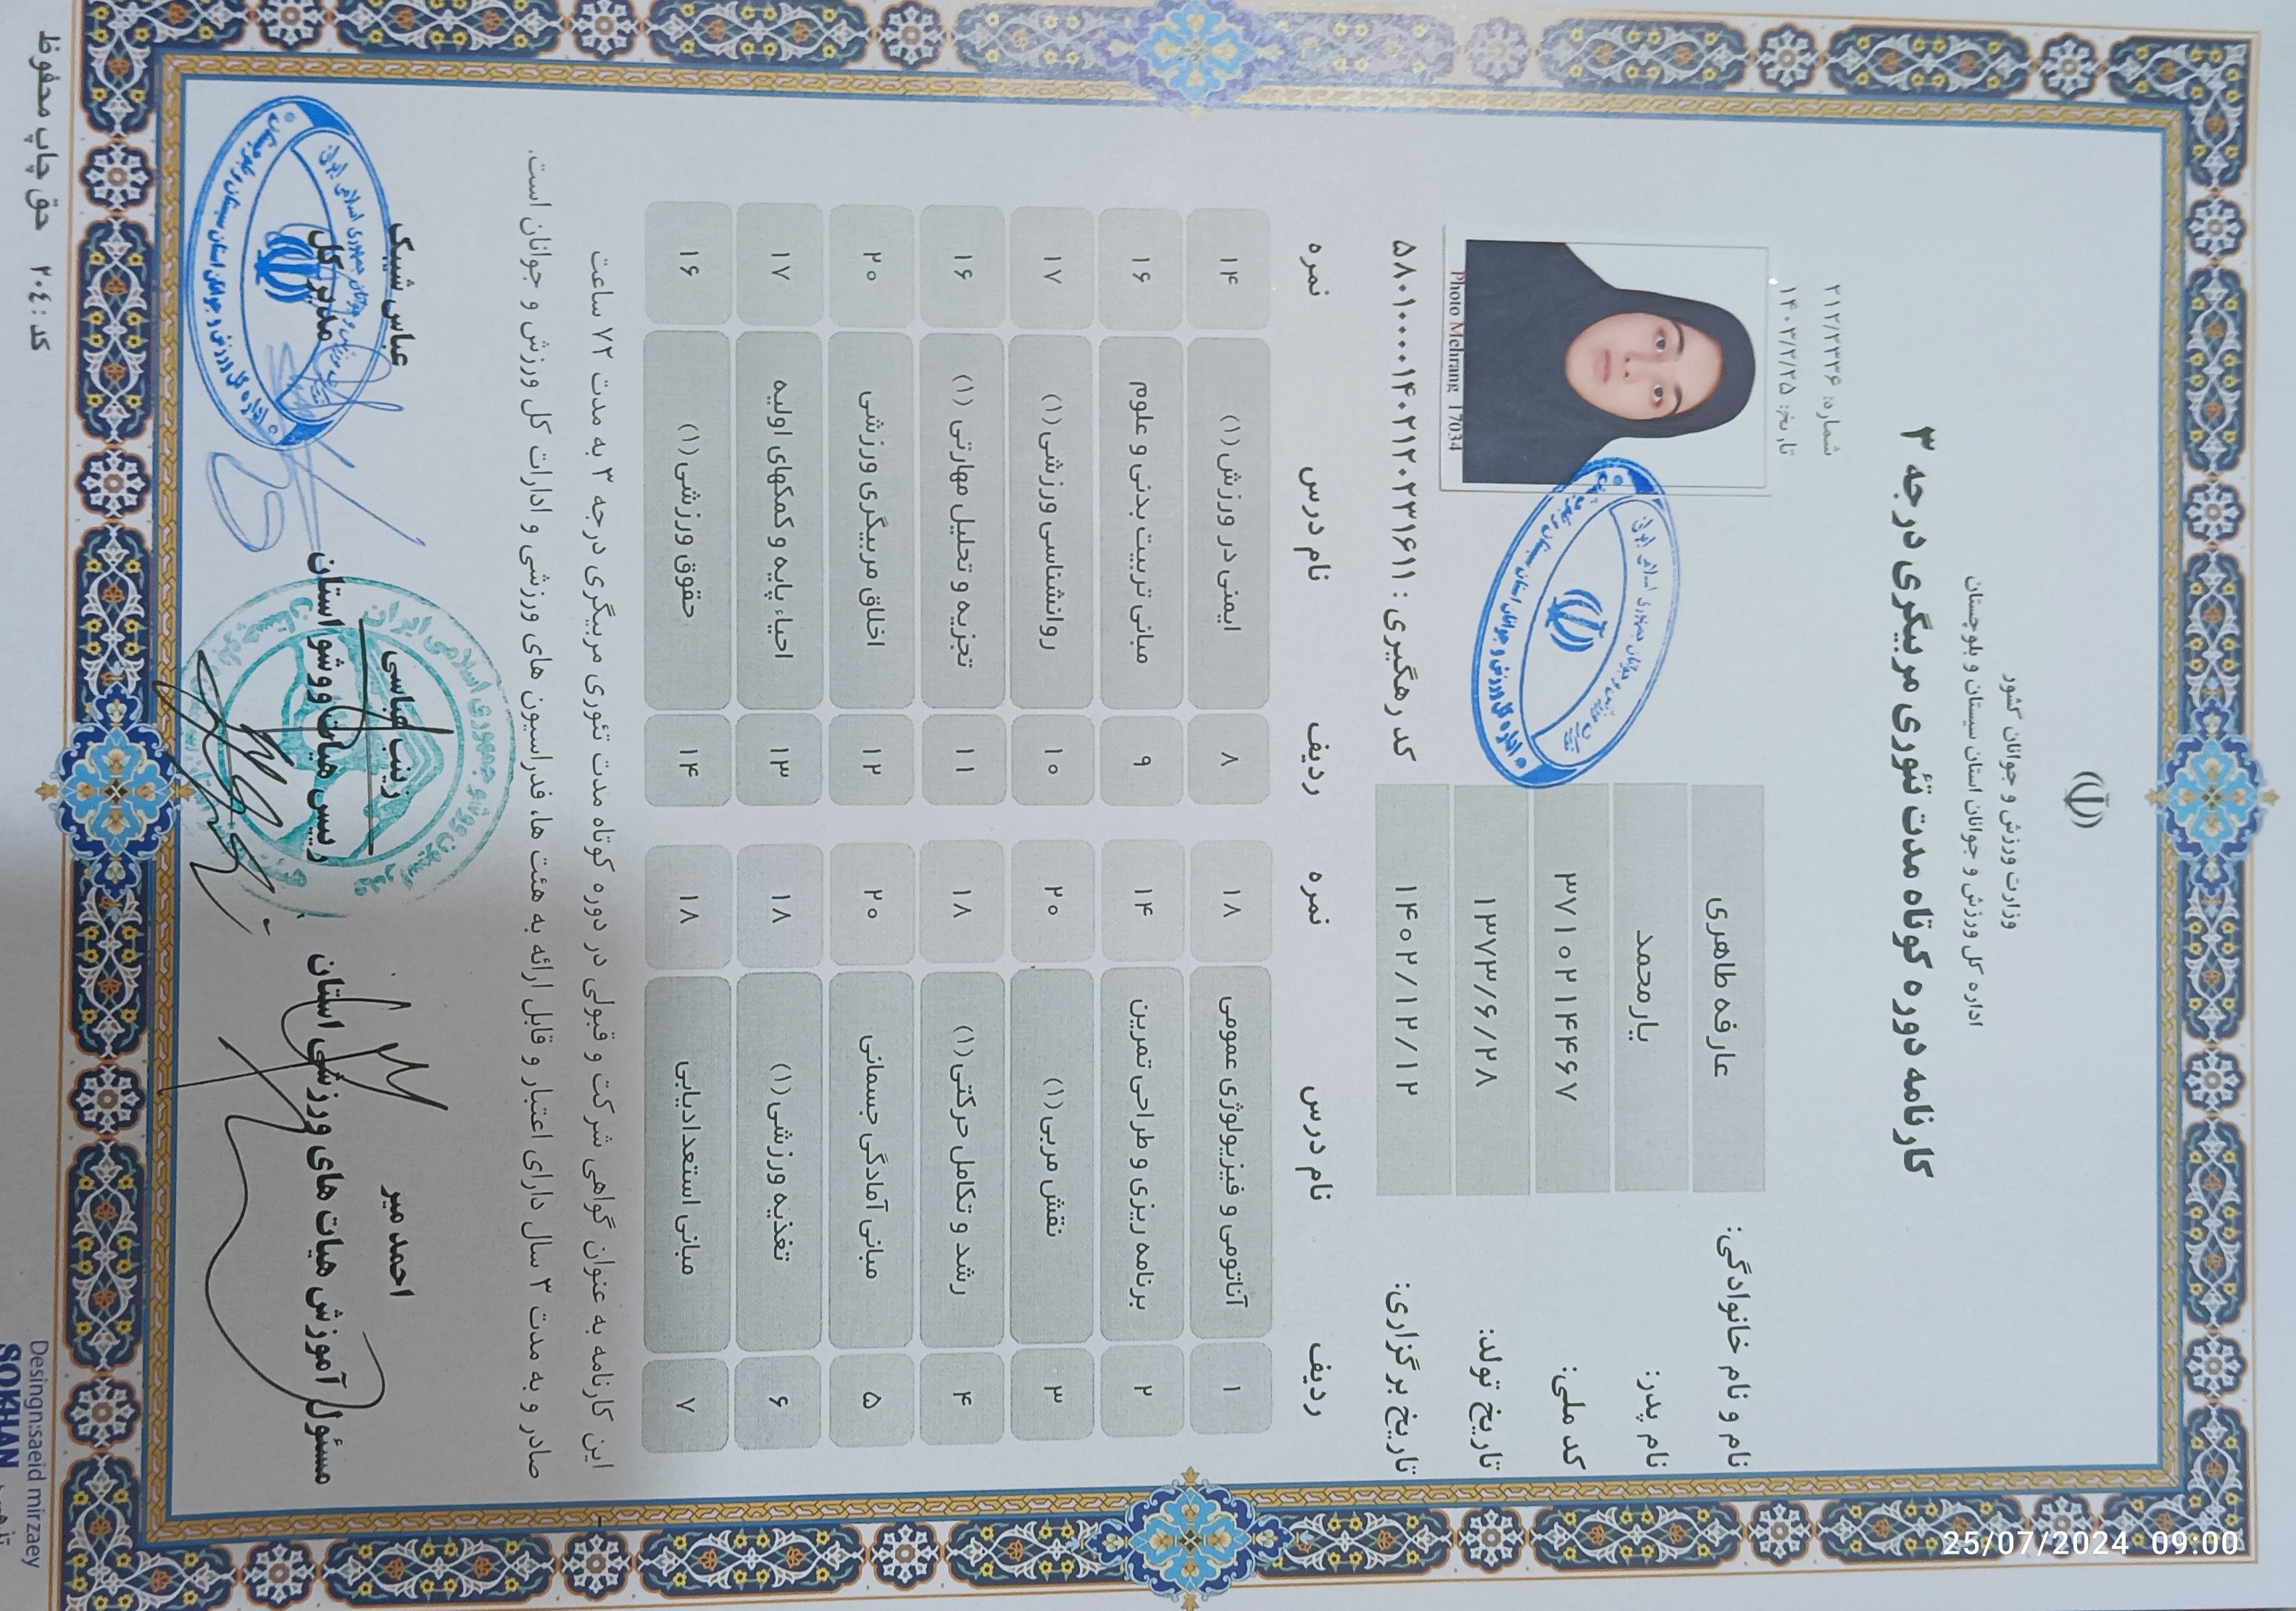 وزارت ورزش و جوانان کشور
اداره کل ورزش و جوانان استان سیستان و بلوچستان
کارنامه دوره کوتاه مدت تئوری مربیگری درجه ۳
شماره: ۲۱۲/۲۳۳۶
تاریخ: ۱۴۰۳/۲/۲۵
نام و نام خانوادگی: عارفه طاهری
نام پدر: یارمحمد
کد ملی: ۳۷۱۰۲۱۴۴۶۷
تاریخ تولد: ۱۳۷۳/۶/۲۸
تاریخ برگزاری: ۱۴۰۲/۱۲/۱۲
Photo Mehrang 17034
کد رهگیری: ۵۸۰۱۰۰۰۱۴۰۲۱۲۰۲۳۱۶۱۱
ردیف نام درس نمره ردیف نام درس نمره
۱ آناتومی و فیزیولوژی عمومی ۱۸ ۸ ایمنی در ورزش (۱) ۱۴
۲ برنامه ریزی و طراحی تمرین ۱۴ ۹ مبانی تربیت بدنی و علوم ۱۶
۳ نقش مربی (۱) ۲۰ ۱۰ روانشناسی ورزشی (۱) ۱۷
۴ رشد و تکامل حرکتی (۱) ۱۸ ۱۱ تجزیه و تحلیل مهارتی (۱) ۱۶
۵ مبانی آمادگی جسمانی ۲۰ ۱۲ اخلاق مربیگری ورزشی ۲۰
۶ تغذیه ورزشی (۱) ۱۸ ۱۳ احیاء پایه و کمکهای اولیه ۱۷
۷ مبانی استعدادیابی ۱۸ ۱۴ حقوق ورزشی (۱) ۱۶
این کارنامه به عنوان گواهی شرکت و قبولی در دوره کوتاه مدت تئوری مربیگری درجه ۳ به مدت ۷۲ ساعت
صادر و به مدت ۳ سال دارای اعتبار و قابل ارائه به هئت ها، فدراسیون های ورزشی و ادارات کل ورزش و جوانان است.
احمد میر
مسئول آموزش هیات های ورزشی استان
زینب عباسی
رییس هیات ووشو استان
عباس شیبک
مدیر کل
Desingn:saeid mirzaey
SOKHAN
کد : ۲۰۴ حق چاپ محفوظ
25/07/2024 09:00